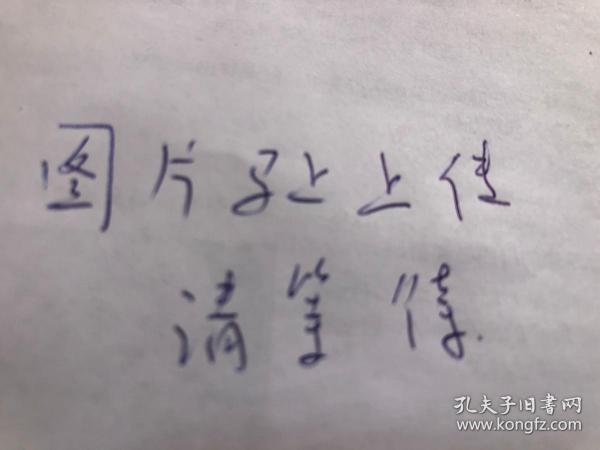 图片马上上传
请等待.
孔夫子旧书网
www.kongfz.com